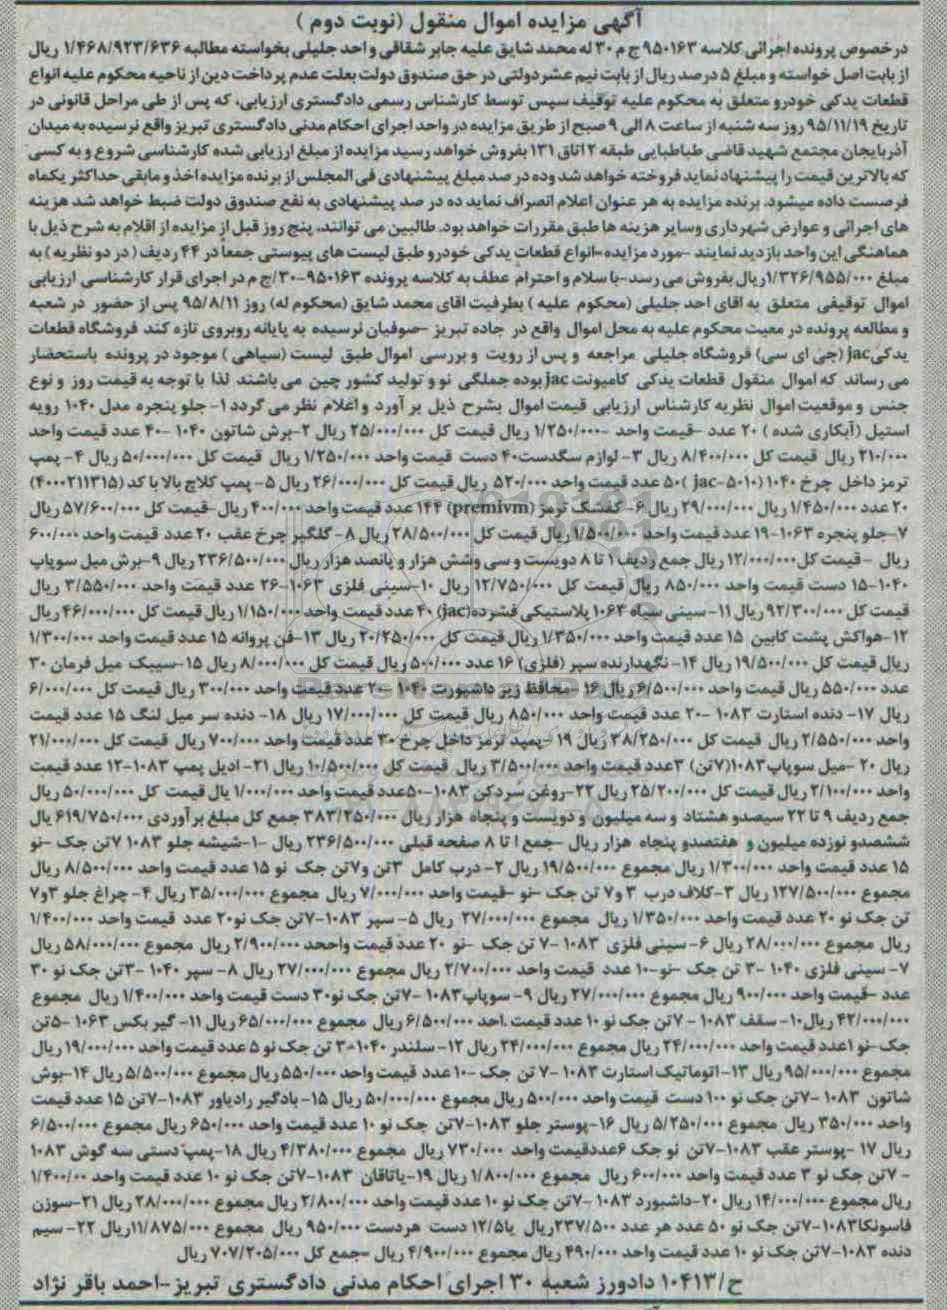 آگهی مزایده اموال منقول (نوبت دوم )
درخصوص پرونده اجرائی کلاسه ۹۵۰۱۶۳ ج م ۳۰ له محمد شایق علیه جابر شقاقی و احد جلیلی بخواسته مطالبه ۱/۴۶۸/۹۲۳/۶۳۶ ریال
از بابت اصل خواسته و مبلغ ۵ درصد ریال از بابت نیم عشر دولتی در حق صندوق دولت بعلت عدم پرداخت دین از ناحیه محکوم علیه انواع
قطعات یدکی خودرو متعلق به محکوم علیه توقیف سپس توسط کارشناس رسمی دادگستری ارزیابی، که پس از طی مراحل قانونی در
تاریخ ۹۵/۱۱/۱۹ روز سه شنبه از ساعت ۸ الی ۹ صبح از طریق مزایده در واحد اجرای احکام مدنی دادگستری تبریز واقع نرسیده به میدان
آذربایجان مجتمع شهید قاضی طباطبایی طبقه ۲ اتاق ۱۳۱ بفروش خواهد رسید مزایده از مبلغ ارزیابی شده کارشناسی شروع و به کسی
که بالاترین قیمت را پیشنهاد نماید فروخته خواهد شد وده در صد مبلغ پیشنهادی فی المجلس از برنده مزایده اخذ و مابقی حداکثر یکماه
فرصست داده میشود. برنده مزایده به هر عنوان اعلام انصراف نماید ده در صد پیشنهادی به نفع صندوق دولت ضبط خواهد شد هزینه
های اجرائی و عوارض شهرداری وسایر هزینه ها طبق مقررات خواهد بود. طالبین می توانند، پنج روز قبل از مزایده از اقلام به شرح ذیل با
هماهنگی این واحد بازدید نمایند -مورد مزایده=انواع قطعات یدکی خودرو طبق لیست های پیوستی جمعا در ۴۴ ردیف ( در دو نظریه ) به
مبلغ ۱/۳۲۶/۹۵۵/۰۰۰ریال بفروش می رسد-با سلام و احترام عطف به کلاسه پرونده ۹۵۰۱۶۳-۳۰/ج م در اجرای قرار کارشناسی ارزیابی
اموال توقیفی متعلق به اقای احد جلیلی (محکوم علیه ) بطرفیت اقای محمد شایق (محکوم له) روز ۹۵/۸/۱۱ پس از حضور در شعبه
و مطالعه پرونده در معیت محکوم علیه به محل اموال واقع در جاده تبریز -صوفیان نرسیده به پایانه روبروی تازه کند فروشگاه قطعات
یدکی jac (جی ای سی) فروشگاه جلیلی مراجعه و پس از رویت و بررسی اموال طبق لیست (سیاهی ) موجود در پرونده باستحضار
می رساند که اموال منقول قطعات یدکی کامیونت jac بوده جملگی نو و تولید کشور چین می باشند لذا با توجه به قیمت روز و نوع
جنس و موقعیت اموال نظریه کارشناس ارزیابی قیمت اموال بشرح ذیل بر آورد و اعلام نظر می گردد ۱- جلو پنجره مدل ۱۰۴۰ رویه
استیل (آبکاری شده ) ۲۰ عدد -قیمت واحد -۱/۲۵۰/۰۰۰ ریال قیمت کل ۲۵/۰۰۰/۰۰۰ ریال ۲-برش شاتون ۱۰۴۰ -۴۰ عدد قیمت واحد
۲۱۰/۰۰۰ ریال قیمت کل ۸/۴۰۰/۰۰۰ ریال ۳- لوازم سگدست۴۰ دست قیمت واحد ۱/۲۵۰/۰۰۰ ریال قیمت کل ۵۰/۰۰۰/۰۰۰ ریال ۴- پمپ
ترمز داخل چرخ ۱۰۴۰ (۵۰۱۰-jac )۵۰ عدد قیمت واحد ۵۲۰/۰۰۰ ریال قیمت کل ۲۶/۰۰۰/۰۰۰ ریال ۵- پمپ کلاچ بالا با کد (۴۰۰۰۲۱۱۳۱۵)
۲۰ عدد ۱/۴۵۰/۰۰۰ ریال ۲۹/۰۰۰/۰۰۰ ریال ۶- کفشک ترمز (premivm) ۱۴۴ عدد قیمت واحد ۴۰۰/۰۰۰ ریال -قیمت کل ۵۷/۶۰۰/۰۰۰ ریال
۷-جلو پنجره ۱۰۶۳-۱۹ عدد قیمت واحد ۱/۵۰۰/۰۰۰ ریال قیمت کل ۲۸/۵۰۰/۰۰۰ ریال ۸- گلگیر چرخ عقب ۲۰ عدد قیمت واحد ۶۰۰/۰۰۰
ریال - قیمت کل ۱۲/۰۰۰/۰۰۰ ریال جمع ردیف ۱ تا ۸ دویست و سی وشش هزار و پانصد هزار ریال ۲۳۶/۵۰۰/۰۰۰ ریال ۹-برش میل سوپاپ
۱۰۴۰-۱۵ دست قیمت واحد ۸۵۰/۰۰۰ ریال قیمت کل ۱۲/۷۵۰/۰۰۰ ریال ۱۰-سینی فلزی ۱۰۶۳-۲۶ عدد قیمت واحد ۳/۵۵۰/۰۰۰ ریال
قیمت کل ۹۲/۳۰۰/۰۰۰ ریال ۱۱- سینی سیاه ۱۰۶۴ پلاستیکی فشرده(jac) ۴۰ عدد قیمت واحد ۱/۱۵۰/۰۰۰ ریال قیمت کل ۴۶/۰۰۰/۰۰۰ ریال
۱۲-هواکش پشت کابین ۱۵ عدد قیمت واحد ۱/۳۵۰/۰۰۰ ریال قیمت کل ۲۰/۲۵۰/۰۰۰ ریال ۱۳-فن پروانه ۱۵ عدد قیمت واحد ۱/۳۰۰/۰۰۰
ریال قیمت کل ۱۹/۵۰۰/۰۰۰ ریال ۱۴- نگهدارنده سپر (فلزی) ۱۶ عدد ۵۰۰/۰۰۰ ریال قیمت کل ۸/۰۰۰/۰۰۰ ریال ۱۵-سیبک میل فرمان ۳۰
عدد ۵۵۰/۰۰۰ ریال قیمت واحد ۶/۵۰۰/۰۰۰ ریال ۱۶ -محافظ زیر داشپورت ۱۰۴۰ -۲۰ عدد قیمت واحد ۳۰۰/۰۰۰ ریال قیمت کل ۶/۰۰۰/۰۰۰
ریال ۱۷- دنده استارت ۱۰۸۳ -۲۰ عدد قیمت واحد ۸۵۰/۰۰۰ ریال قیمت کل ۱۷/۰۰۰/۰۰۰ ریال ۱۸- دنده سر میل لنگ ۱۵ عدد قیمت
واحد ۲/۵۵۰/۰۰۰ ریال قیمت کل ۳۸/۲۵۰/۰۰۰ ریال ۱۹ -پمپد ترمز داخل چرخ ۳۰ عدد قیمت واحد ۷۰۰/۰۰۰ ریال قیمت کل ۲۱/۰۰۰/۰۰۰
ریال ۲۰ -میل سوپاپ۱۰۸۳(۷تن) ۳عدد قیمت واحد ۳/۵۰۰/۰۰۰ ریال قیمت کل ۱۰/۵۰۰/۰۰۰ ریال ۲۱- ادیل پمپ ۱۰۸۳-۱۲ عدد قیمت
واحد ۲/۱۰۰/۰۰۰ ریال قیمت کل ۲۵/۲۰۰/۰۰۰ ریال ۲۲-روغن سردکن ۱۰۸۳-۵۰عدد قیمت واحد ۱/۰۰۰/۰۰۰ یال قیمت کل ۵۰/۰۰۰/۰۰۰ ریال
جمع ردیف ۹ تا ۲۲ سیصدو هشتاد و سه میلیون و دویست و پنجاه هزار ریال ۳۸۳/۲۵۰/۰۰۰ جمع کل مبلغ بر آوردی ۶۱۹/۷۵۰/۰۰۰ یال
ششصدو نوزده میلیون و هفتصدو پنجاه هزار ریال -جمع ا تا ۸ صفحه قبلی ۲۳۶/۵۰۰/۰۰۰ ریال -۱-شیشه جلو ۱۰۸۳ ۷تن جک -نو
۱۵ عدد قیمت واحد ۱/۳۰۰/۰۰۰ ریال مجموع ۱۹/۵۰۰/۰۰۰ ریال ۲- درب کامل ۳تن و۷تن جک نو ۱۵ عدد قیمت واحد ۸/۵۰۰/۰۰۰ ریال
مجموع ۱۲۷/۵۰۰/۰۰۰ ریال ۳-کلاف درب ۳و۷ تن جک -نو -قیمت واحد ۷/۰۰۰/۰۰۰ ریال مجموع ۳۵/۰۰۰/۰۰۰ ریال ۴- چراغ جلو ۳و۷
تن جک نو ۲۰ عدد قیمت واحد ۱/۳۵۰/۰۰۰ ریال مجموع ۲۷/۰۰۰/۰۰۰ ریال ۵- سپر ۱۰۸۳-۷تن جک نو۲۰ عدد قیمت واحد ۱/۴۰۰/۰۰۰
ریال مجموع ۲۸/۰۰۰/۰۰۰ ریال ۶- سینی فلزی ۱۰۸۳ -۷ تن جک -نو ۲۰ عدد قیمت واححد ۲/۹۰۰/۰۰۰ ریال مجموع ۵۸/۰۰۰/۰۰۰ ریال
۷- سینی فلزی ۱۰۴۰ -۳ تن جک -نو-۱۰ عدد قیمت واحد ۲/۷۰۰/۰۰۰ ریال مجموع ۲۷/۰۰۰/۰۰۰ ریال ۸- سپر ۱۰۴۰ -۳تن جک نو ۳۰
عدد -قیمت واحد ۹۰۰/۰۰۰ ریال مجموع ۲۷/۰۰۰/۰۰۰ ریال ۹- سوپاپ۱۰۸۳ -۷تن جک نو۳۰ دست قیمت واحد ۱/۴۰۰/۰۰۰ ریال مجموع
۴۲/۰۰۰/۰۰۰ ریال ۱۰- سقف ۱۰۸۳ -۷تن جک نو ۱۰ عدد قیمت .احد ۶/۵۰۰/۰۰۰ ریال مجموع ۶۵/۰۰۰/۰۰۰ ریال ۱۱- گیر بکس ۱۰۶۳ -۵تن
جک-نو ۱عدد قیمت واحد ۲۴/۰۰۰/۰۰۰ ریال مجموع ۲۴/۰۰۰/۰۰۰ ریال ۱۲- سلندر ۱۰۴۰-۳ تن جک نو ۵ عدد قیمت واحد ۱۹/۰۰۰/۰۰۰ ریال
مجموع ۹۵/۰۰۰/۰۰۰ ریال ۱۳-اتوماتیک استارت ۱۰۸۳ -۷ تن جک -۱۰ عدد قیمت واحد ۵۵۰/۰۰۰ ریال مجموع ۵/۵۰۰/۰۰۰ ریال ۱۴-بوش
شاتون ۱۰۸۳ -۷تن جک نو ۱۰۰ دست قیمت واحد ۵۰۰/۰۰۰ ریال مجموع ۵۰/۰۰۰/۰۰۰ ریال ۱۵- بادگیر رادیاور ۱۰۸۳-۷تن ۱۵ عدد قیمت
واحد ۳۵۰/۰۰۰ ریال مجموع ۵/۲۵۰/۰۰۰ ریال ۱۶-پوستر جلو ۱۰۸۳-۷تن جک نو ۱۰ عدد قیمت واحد ۶۵۰/۰۰۰ ریال مجموع ۶/۵۰۰/۰۰۰
ریال ۱۷ -پوستر عقب ۱۰۸۳-۷تن نو جک ۶عددقیمت واحد ۷۳۰/۰۰۰ ریال مجموع ۴/۳۸۰/۰۰۰ ریال ۱۸-پمپ دستی سه گوش ۱۰۸۳
- ۷تن جک نو ۳ عدد قیمت واحد ۶۰۰/۰۰۰ ریال مجموع ۱/۸۰۰/۰۰۰ ریال ۱۹-یاتاقان ۱۰۸۳-۷تن جک نو ۱۰ عدد قیمت واحد ۱/۴۰۰/۰۰
ریال مجموع ۱۴/۰۰۰/۰۰۰ ریال ۲۰-داشبورد ۱۰۸۳ -۷تن جک نو ۱۰ عدد قیمت واحد ۲/۸۰۰/۰۰۰ ریال مجموع ۲۸/۰۰۰/۰۰۰ ریال ۲۱-سوزن
فاسونکا۱۰۸۳-۷تن جک نو ۵۰ عدد هر عدد ۲۳۷/۵۰۰ریال یا۱۲/۵ دست هردست ۹۵۰/۰۰۰ ریال مجموع ۱۱/۸۷۵/۰۰۰ریال ۲۲- سیم
دنده ۱۰۸۳-۷تن جک نو ۱۰ عدد قیمت واحد ۴۹۰/۰۰۰ ریال مجموع ۴/۹۰۰/۰۰۰ ریال -جمع کل ۷۰۷/۲۰۵/۰۰۰ ریال
ح/۱۰۴۱۳ دادورز شعبه ۳۰ اجرای احکام مدنی دادگستری تبریز-احمد باقر نژاد